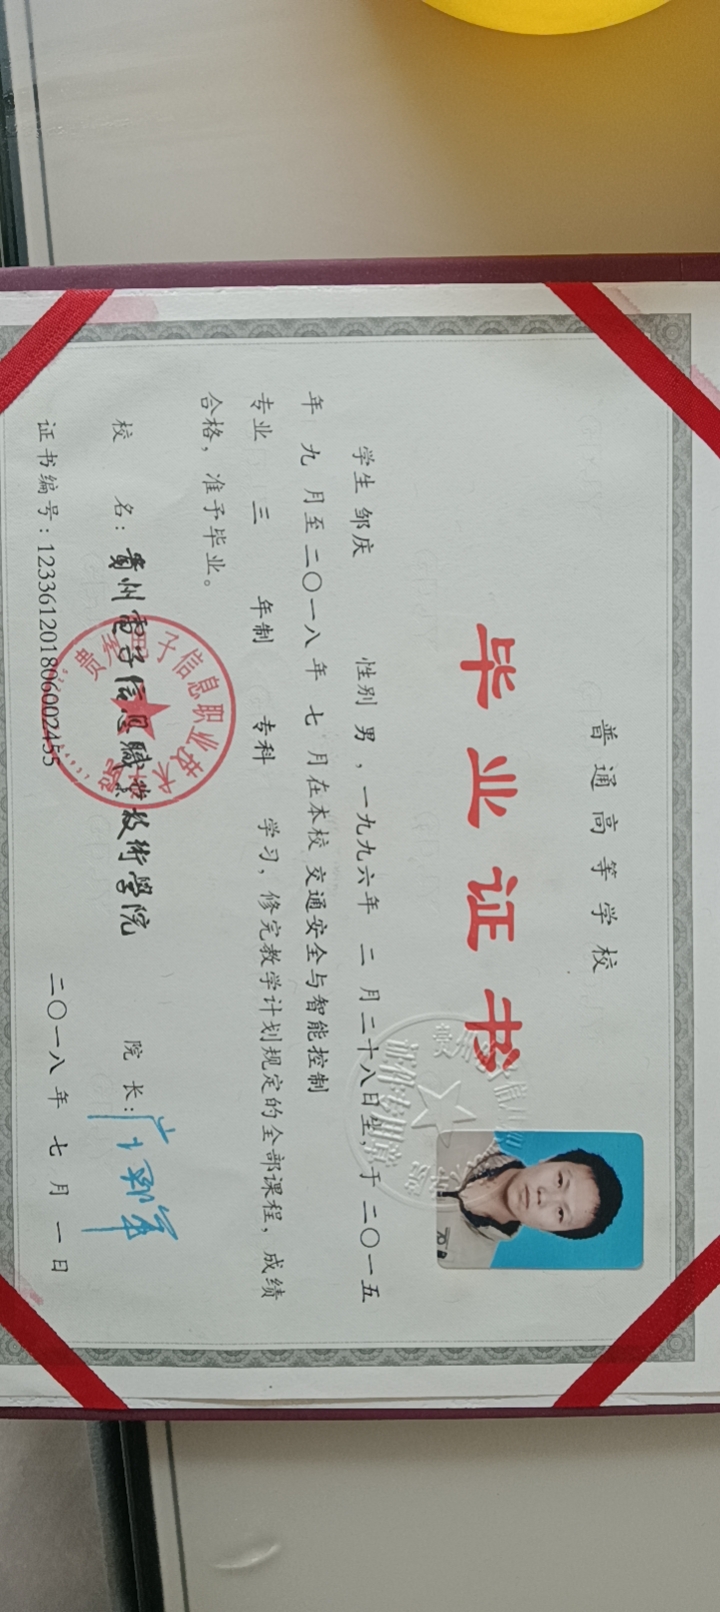 普通高等学校
毕业证书
学生 邹庆 性别 男，一九九六年 二 月二十八日生，于 二〇一五
年 九 月至 二〇一八 年 七 月在本校 交通安全与智能控制
专业 三 年制 专科 学习，修完教学计划规定的全部课程，成绩
合格，准予毕业。
校 名：贵州電子信息職業技術學院 院 长：
证书编号：123361201806002455 二〇一八 年 七 月 一 日
贵州电子信息职业技术学院